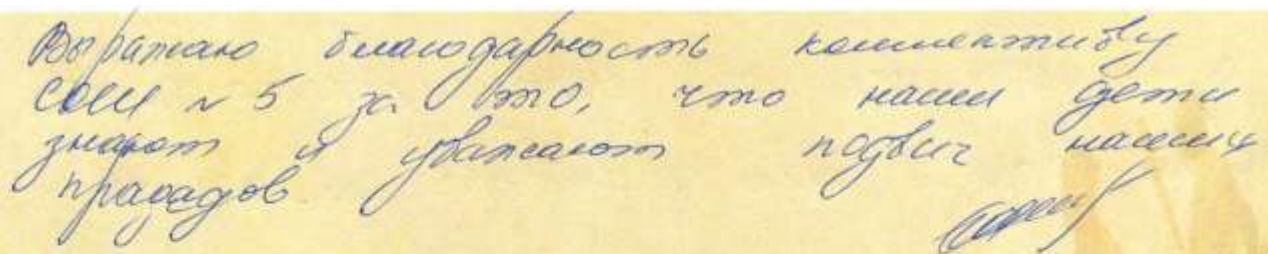 Выражаю благодарность коллективу
СОШ № 5 за то, что наши дети
знают и уважают подвиг наших
прадедов